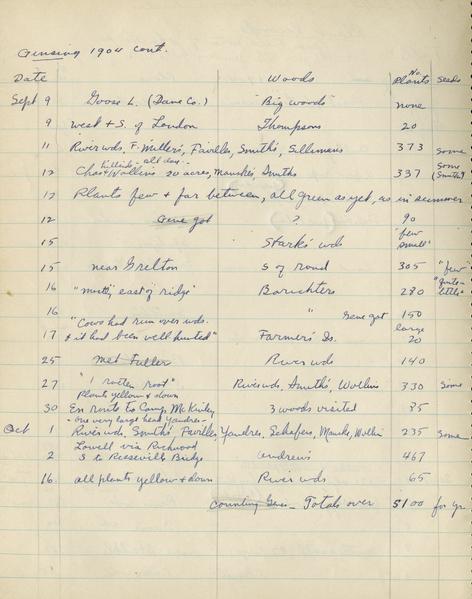 Ginseng 1904 cont.
Date Woods No. Plants Seeds
Sept 9 Goose L. (Dane Co.) "Big woods" none
9 West & S. of London Thompsons 20
11 River wds, F. Miller's, Favilles, Smith's, Sillimans 373 some
hillside - all day -
12 Chas Wollins 20 acres, Manskes, Smiths 337 some (Smith's)
12 Plants few & far between, all green as yet, as in summer
12 Gene got ? 90
15 Starks' wds "few small"
15 near Grelton S of road 305 "few"
16 "mostly east of ridge" Baruchters 280 "quite little"
16 " Gene got 150
"Cows had run over wds.
17 & it had been well hunted" Farmer's Is. large 20
25 met Fuller River wds 140
27 "1 rotten root" River wds, Smiths', Wollins 330 some
Plants yellow & down
30 En route to Camp McKinley 3 woods visited 35
- one very large head Yandres -
Oct 1 River wds, Smiths', Favilles, Yandres, Schafers, Manske, Wollin 235 some
Lowell via Richwood
2 S to Reeseville Bridge Andrews 467
16 all plants yellow & down River wds 65
Counting Genes - Totals over 5100 for yr